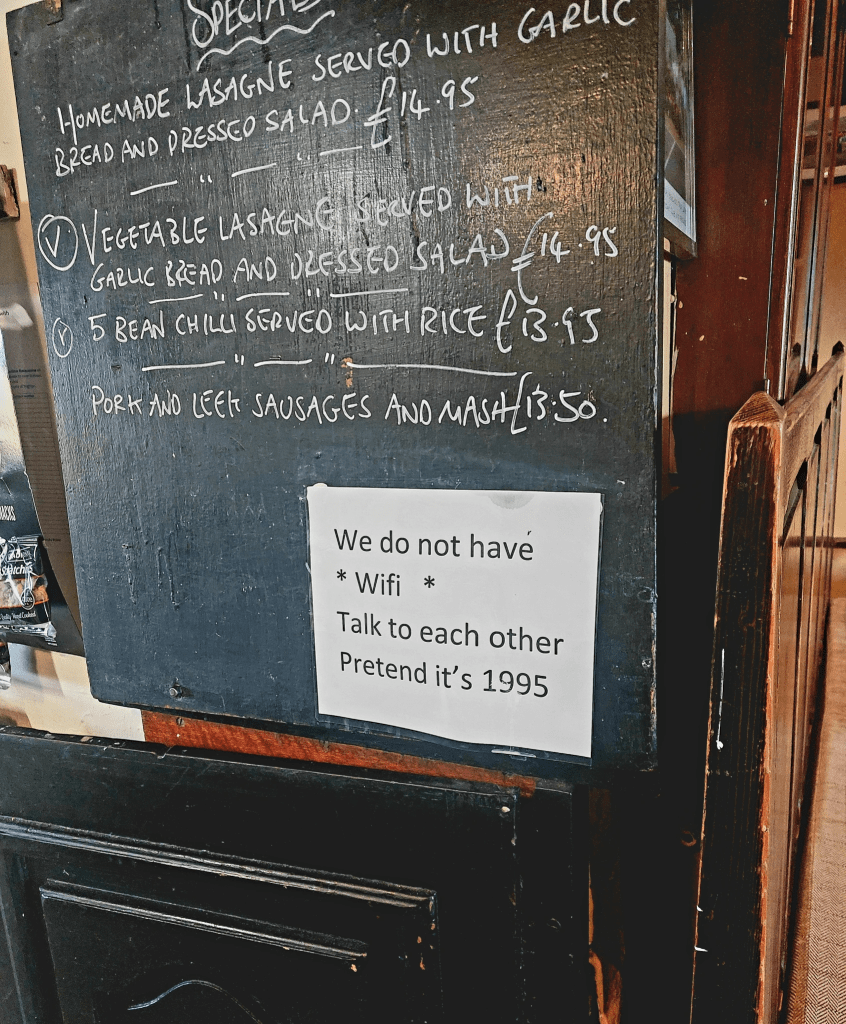 SPECIALS
HOMEMADE LASAGNE SERVED WITH GARLIC
BREAD AND DRESSED SALAD. £14.95
V VEGETABLE LASAGNE SERVED WITH
GARLIC BREAD AND DRESSED SALAD £14.95
V 5 BEAN CHILLI SERVED WITH RICE £13.95
PORK AND LEEK SAUSAGES AND MASH £13.50.
We do not have
* Wifi *
Talk to each other
Pretend it's 1995